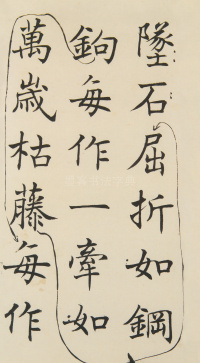 墜石屈折如鋼
鉤每作一牽如
萬歲枯藤每作